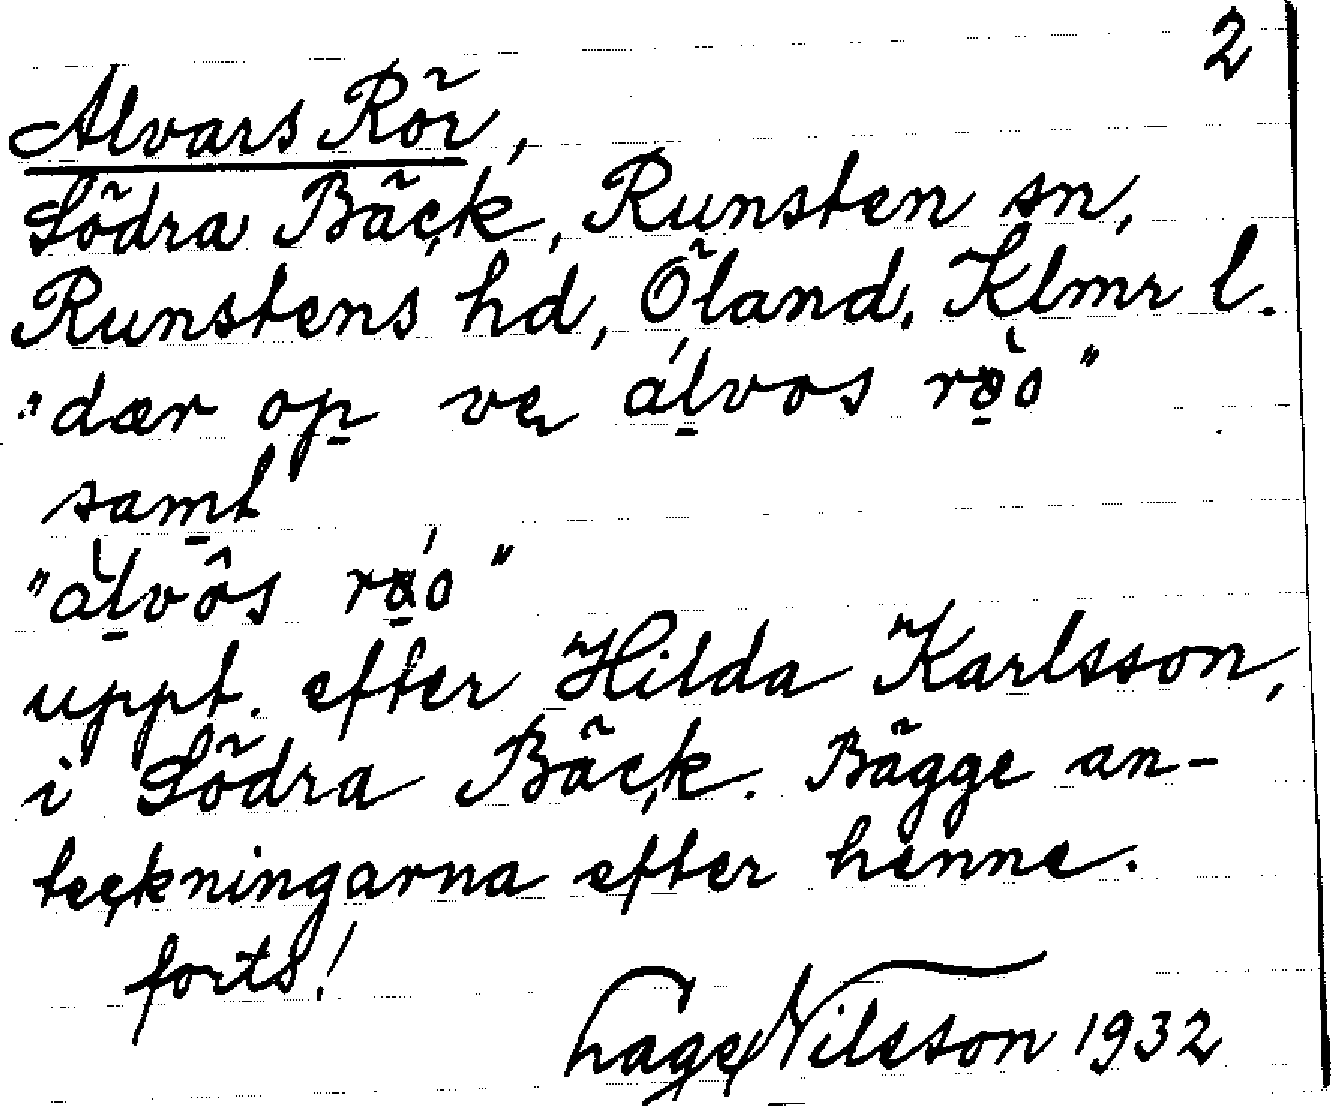 2
Alvars Rör,
Södra Bäck, Runsten sn,
Runstens hd, Öland, Klmr l.
"dær op ve álvos rö̀o"
samt
"àlvôs rǿo"
uppt. efter Hilda Karlsson,
i Södra Bäck. Bägge an-
teckningarna efter henne.
forts!
Hage Nilsson 1932